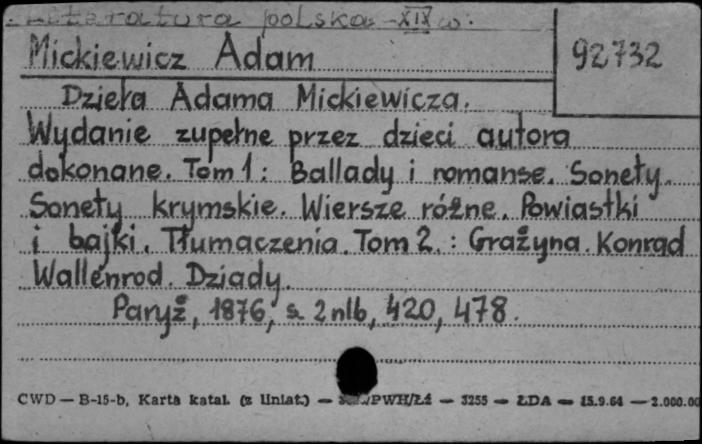 Literatura polska - XIX w.
Mickiewicz Adam
92732
Dzieła Adama Mickiewicza.
Wydanie zupełne przez dzieci autora
dokonane. Tom 1: Ballady i romanse. Sonety.
Sonety krymskie. Wiersze różne. Powiastki
i bajki. Tłumaczenia. Tom 2.: Grażyna. Konrad
Wallenrod. Dziady.
Paryż, 1876, s. 2 nlb, 420, 478.
CWD — B-15-b, Karta katal. (z liniat.) — PWH/Łź — 3255 — ŁDA — 15.9.64 — 2.000.00